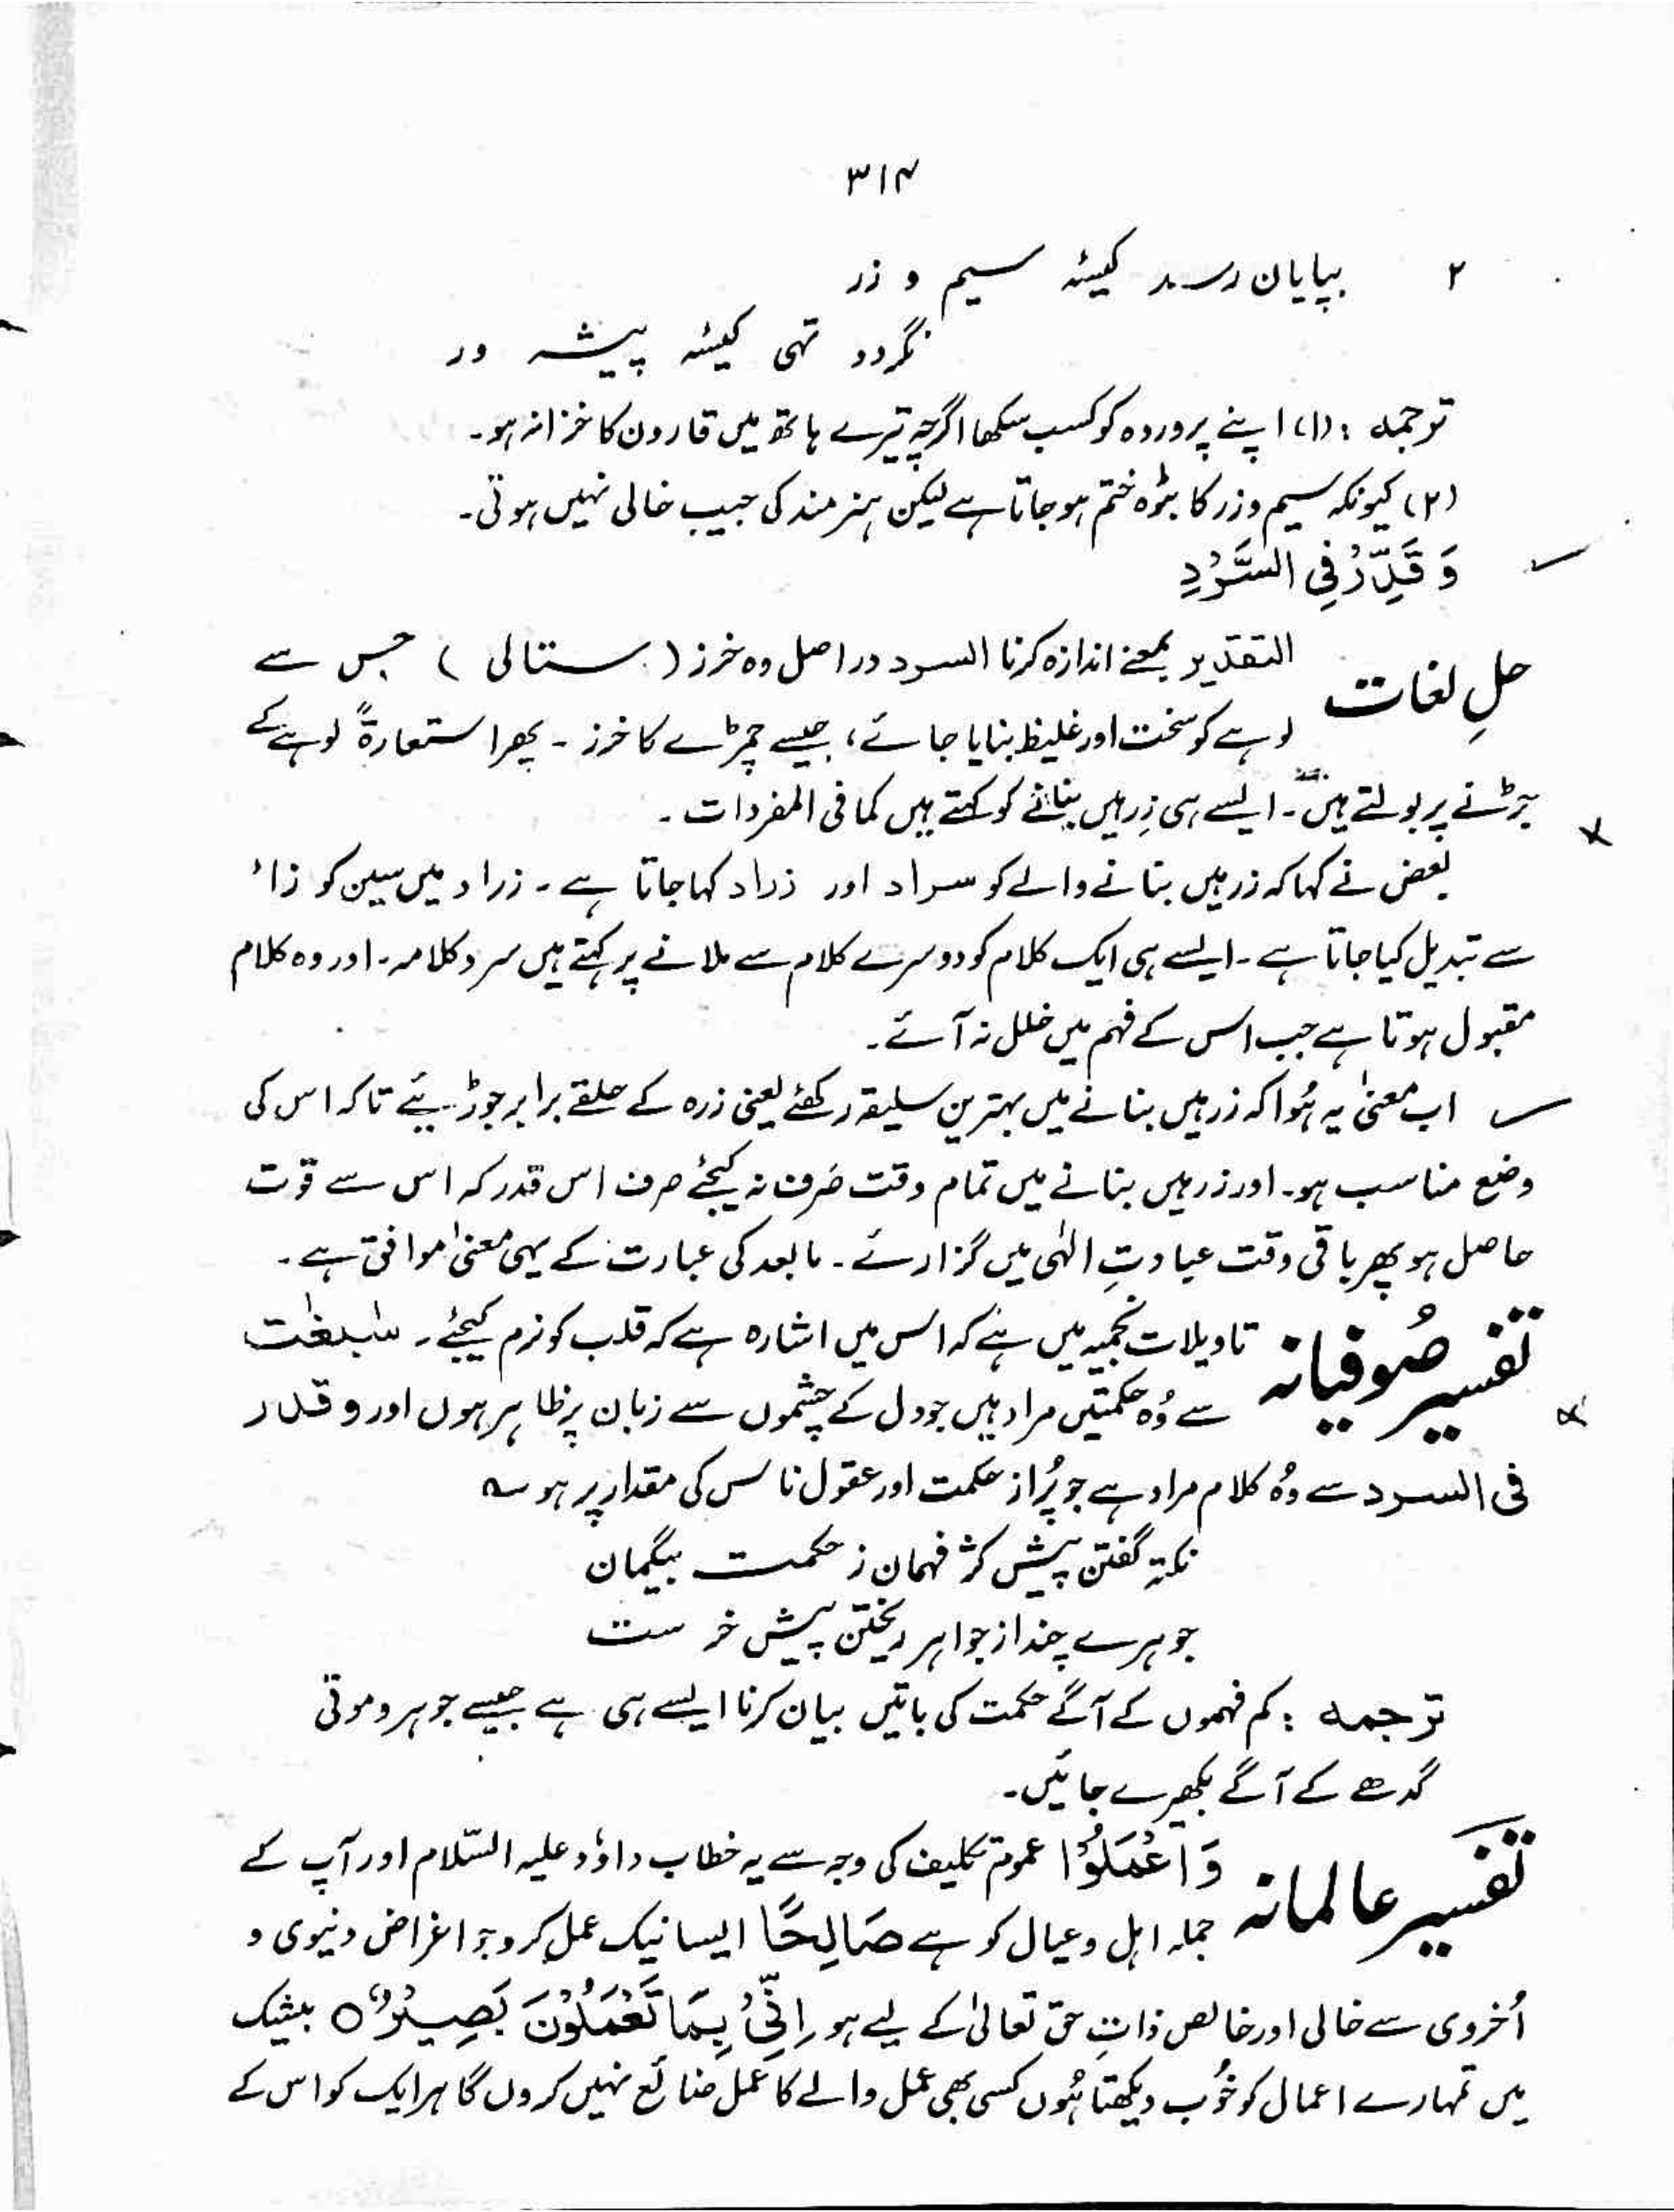 ۳۱۴
۲ بپایان رسد کیسۂ سیم و زر
نگردد تہی کیسۂ پیشہ ور
ترجمہ : (۱) اپنے پروردہ کو کسب سکھا اگرچہ تیرے ہاتھ میں قارون کا خزانہ ہو۔
(۲) کیونکہ سیم و زر کا بٹوہ ختم ہو جاتا ہے لیکن ہنرمند کی جیب خالی نہیں ہوتی۔
وَ قَدِّرْ فِی السَّرْدِ
حلِ لغات التقدیر بمعنے اندازہ کرنا السرد دراصل وہ خرز (ستالی) جس سے
لوہے کو سخت اور غلیظ بنایا جائے، جیسے چمڑے کا خرز۔ پھر استعارۃً لوہے کے
جڑنے پر بولتے ہیں۔ ایسے ہی زرہیں بنانے کو کہتے ہیں کما فی المفردات۔
بعض نے کہا کہ زرہیں بنانے والے کو سراد اور زراد کہا جاتا ہے۔ زراد میں سین کو زاء
سے تبدیل کیا جاتا ہے۔ ایسے ہی ایک کلام کو دوسرے کلام سے ملانے پر کہتے ہیں سرد کلامہ۔ اور وہ کلام
مقبول ہوتا ہے جب اس کے فہم میں خلل نہ آئے۔
اب معنیٰ یہ ہُوا کہ زرہیں بنانے میں بہترین سلیقہ رکھئے یعنی زرہ کے حلقے برابر جوڑیئے تاکہ اس کی
وضع مناسب ہو۔ اور زرہیں بنانے میں تمام وقت صَرف نہ کیجئے صرف اس قدر کہ اس سے قوّت
حاصل ہو پھر باقی وقت عبادتِ الٰہی میں گزارئے۔ مابعد کی عبارت کے یہی معنیٰ موافق ہے۔
تفسیر صُوفیانہ تاویلات نجمیہ میں ہے کہ اس میں اشارہ ہے کہ قلب کو نرم کیجئے۔ سٰبغٰت
سے وُہ حکمتیں مراد ہیں جو دل کے چشموں سے زبان پر ظاہر ہوں اور و قدر
فی السرد سے وُہ کلام مراد ہے جو پُر از حکمت اور عقول ناس کی مقدار پر ہو ؎
نکتہ گفتن پیش کژ فہمان ز حکمت بیگمان
جوہرے چند از جواہر ریختن پیش خر ست
ترجمہ : کم فہموں کے آگے حکمت کی باتیں بیان کرنا ایسے ہی ہے جیسے جوہر و موتی
گدھے کے آگے بکھیرے جائیں۔
تفسیر عالمانہ وَ اعْمَلُوْا عموم تکلیف کی وجہ سے یہ خطاب داؤد علیہ السّلام اور آپ کے
جملہ اہل و عیال کو ہے صَالِحًا ایسا نیک عمل کرو جو اغراض دنیوی و
اُخروی سے خالی اور خالص ذاتِ حق تعالیٰ کے لیے ہو اِنِّیْ بِمَا تَعْمَلُوْنَ بَصِیْرٌ ۝ بیشک
میں تمہارے اعمال کو خُوب دیکھتا ہُوں کسی بھی عمل والے کا عمل ضائع نہیں کروں گا ہر ایک کو اس کے